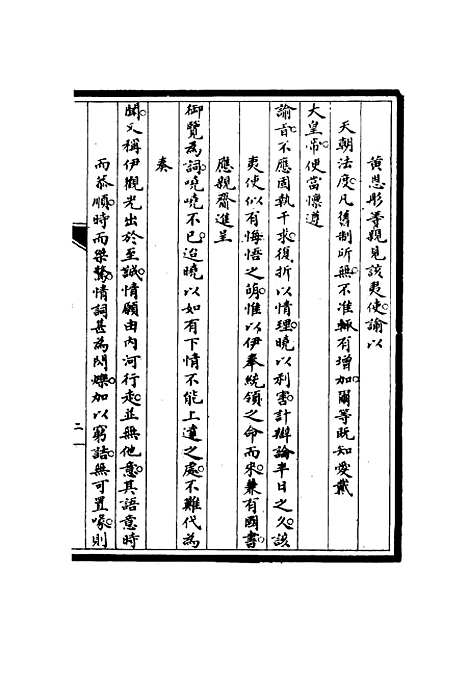 黃恩彤等親見該夷使諭以
天朝法度凡舊制所無不准輒有增加爾等既知愛戴
大皇帝使當懍遵
諭旨不應固執干求復折以情理曉以利害計辯論半日之久該
夷使似有悔悟之萌惟以伊奉統領之命而來兼有國書
應親齎進呈
御覽為詞嘵嘵不已迨曉以如有下情不能上達之處不難代為
奏
聞又稱伊觀光出於至誠情願由內河行走並無他意其語意時
而恭順時而桀驁情詞甚為閃爍加以窮詰無可置喙則
二